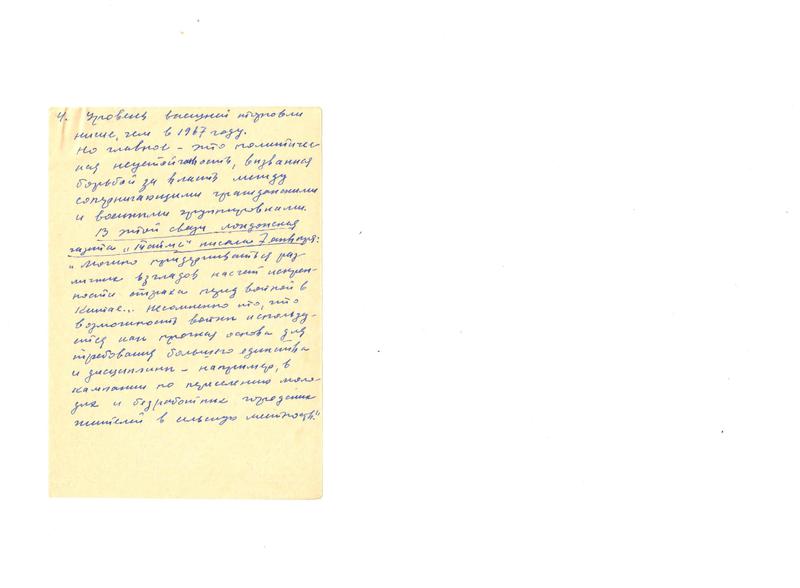 4. Уровень внешней торговли
ниже, чем в 1967 году.
Но главное – это политичес-
кая неустойчивость, вызванная
борьбой за власть между
соперничающими гражданскими
и военными группировками.
В этой связи лондонская
газета „Таймс" писала 7 января:
"Можно придерживаться раз-
личных взглядов насчет искрен-
ности страха перед войной в
Китае... Несомненно то, что
возможность войны использу-
ется как прочная основа для
требования большего единства
и дисциплины – например, в
кампании по переселению моло-
дых и безработных городских
жителей в сельскую местность."